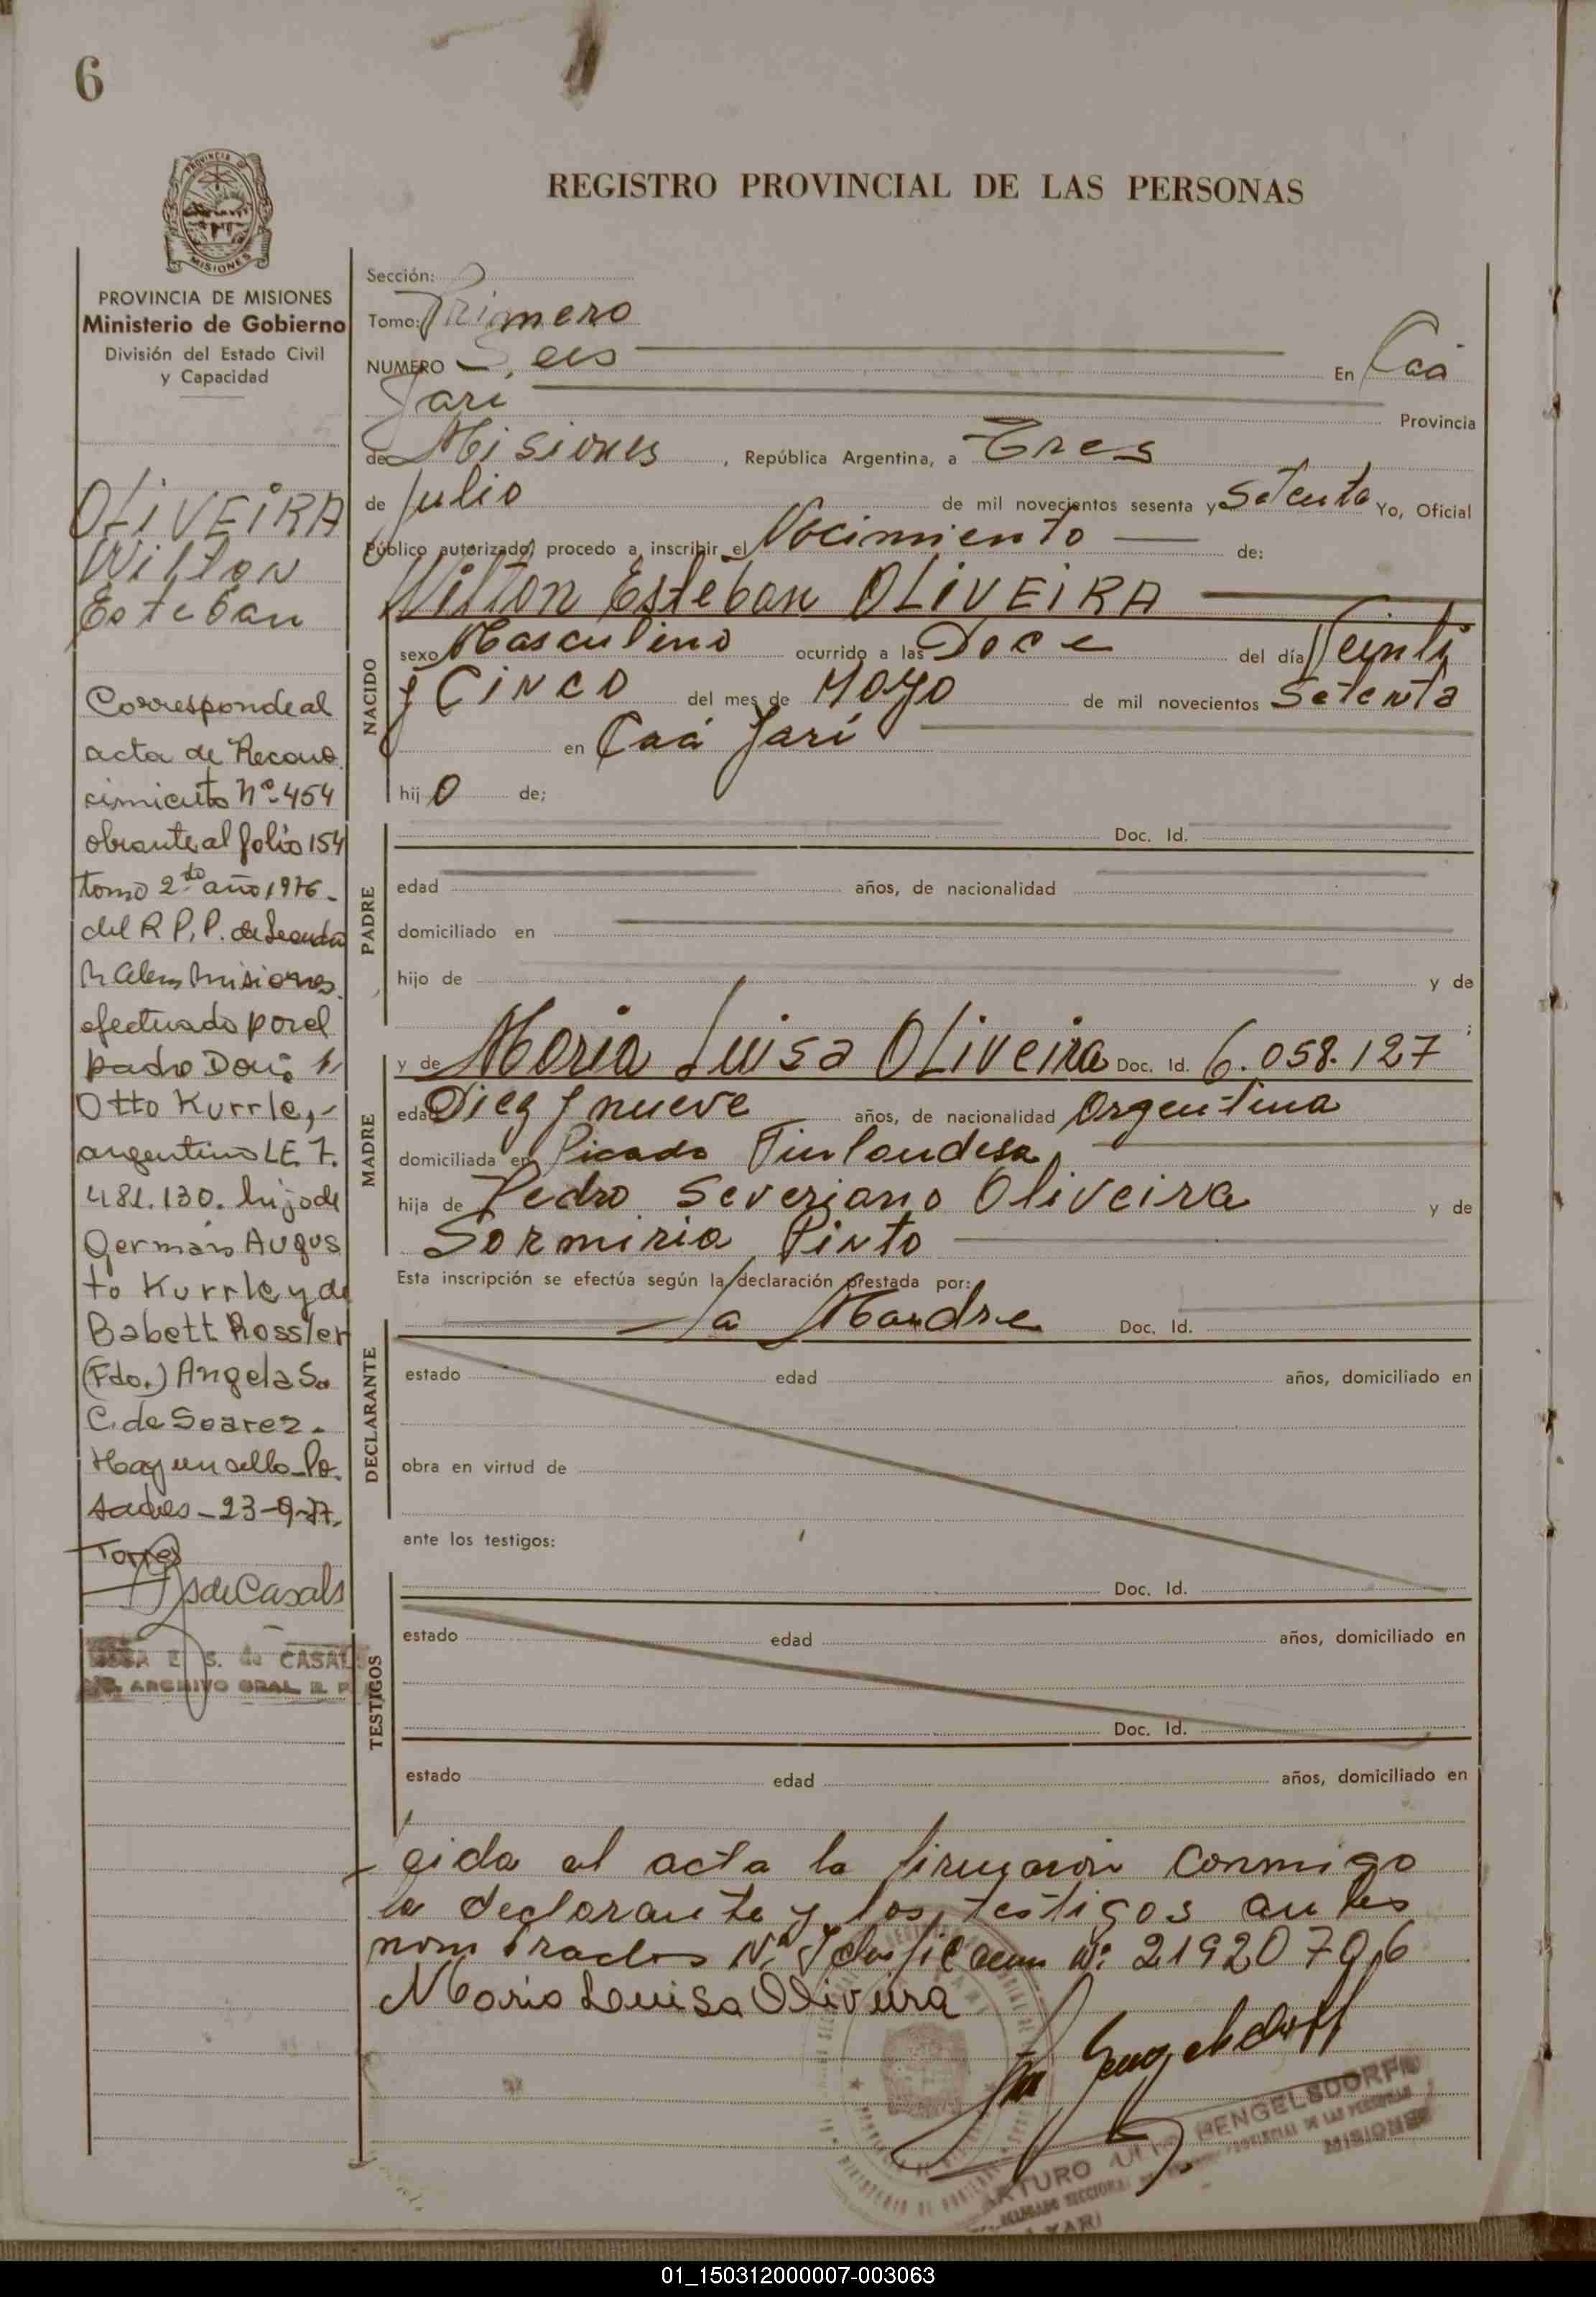 6
PROVINCIA DE MISIONES
Ministerio de Gobierno
División del Estado Civil
y Capacidad
OLIVEIRA
Wilton
Esteban
Corresponde al
acta de Recono
cimiento Nº 454
obrante al folio 154
tomo 2do año 1976.
del R P. P. de Leandro
N Alem Misiones.
efectuado por el
padre Don
Otto Kurrle,
argentino LE 7.
481.130. hijo de
German Augus
to Kurrle y de
Babett Rossler
(Fdo.) Angela S.
C. de Soarez.
Hay un sello. Po
sadas - 23-9-77.
Torres
S de Casals
E. S. de CASAL
ARCHIVO GRAL R. P.
REGISTRO PROVINCIAL DE LAS PERSONAS
Sección:
Tomo: Primero
NUMERO Seis En Caá
Yari Provincia
de Misiones , República Argentina, a Tres
de Julio de mil novecientos sesenta y Setenta Yo, Oficial
Público autorizado, procedo a inscribir el Nacimiento de:
Wilton Esteban OLIVEIRA
NACIDO
sexo Masculino ocurrido a las Doce del día Veinti
y Cinco del mes de Mayo de mil novecientos Setenta
en Caá Yarí
hij o de;
PADRE
Doc. Id.
edad años, de nacionalidad
domiciliado en
hijo de y de
;
MADRE
y de Maria Luisa Oliveira Doc. Id. 6.058.127
edad Diez y nueve años, de nacionalidad Argentina
domiciliada en Picada Finlandesa
hija de Pedro Severiano Oliveira y de
Sormiria Pinto
Esta inscripción se efectúa según la declaración prestada por:
La Mandre Doc. Id.
DECLARANTE
estado edad años, domiciliado en
obra en virtud de
ante los testigos:
TESTIGOS
Doc. Id.
estado edad años, domiciliado en
Doc. Id.
estado edad años, domiciliado en
eida el acta la firmaron conmigo
la declarante y los testigos antes
nombrados Nº Identificacion Nº 21920796
Maria Luisa Oliveira
ARTURO JULIO HENGELSDORFF
DELEGADO SECCIONAL PROVINCIAL DE LAS PERSONAS
MISIONES
YARI
01_150312000007-003063